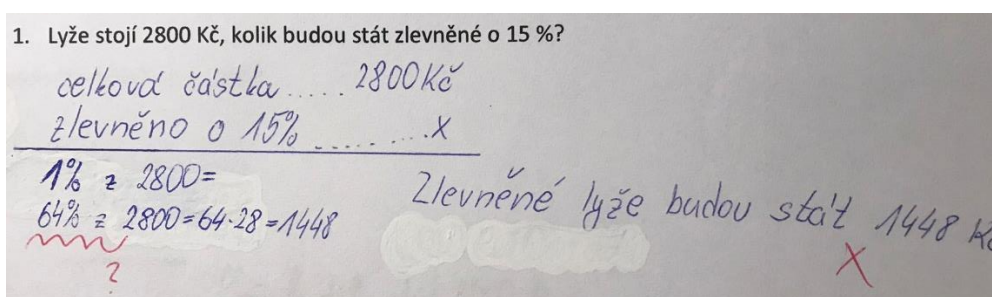 1. Lyže stojí 2800 Kč, kolik budou stát zlevněné o 15 %?
celková částka ..... 2800 Kč
zlevněno o 15% ......... x
1% z 2800=
64% z 2800=64·28=1448
?
Zlevněné lyže budou stát 1448 Kč
X